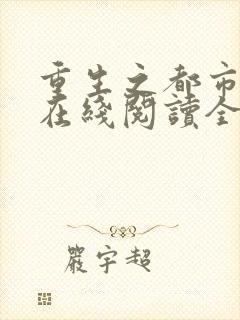 重生之都市
在綫閱讀全
嚴宇超